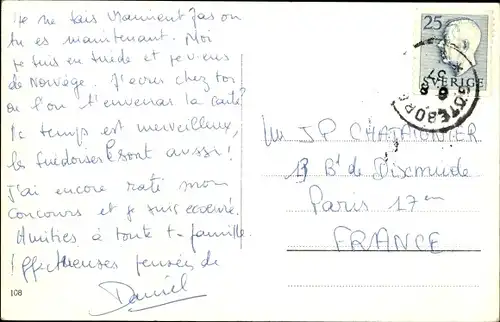 Je ne sais vraiment pas où
tu es maintenant. Moi
je suis en Suède et je viens
de Norvège. J'écris chez toi
où l'on t'enverra la carte
le temps est merveilleux,
les suédoises sont aussi !
J'ai encore raté mon
concours et je suis écoeuré.
Amitiés à toute t- famille
Affectueuses pensées de
Daniel
108
25
SVERIGE
GÖTEBORG
6 8
57
Mr JP CHATAIGNIER
13 Bd de Dixmude
Paris 17em
FRANCE